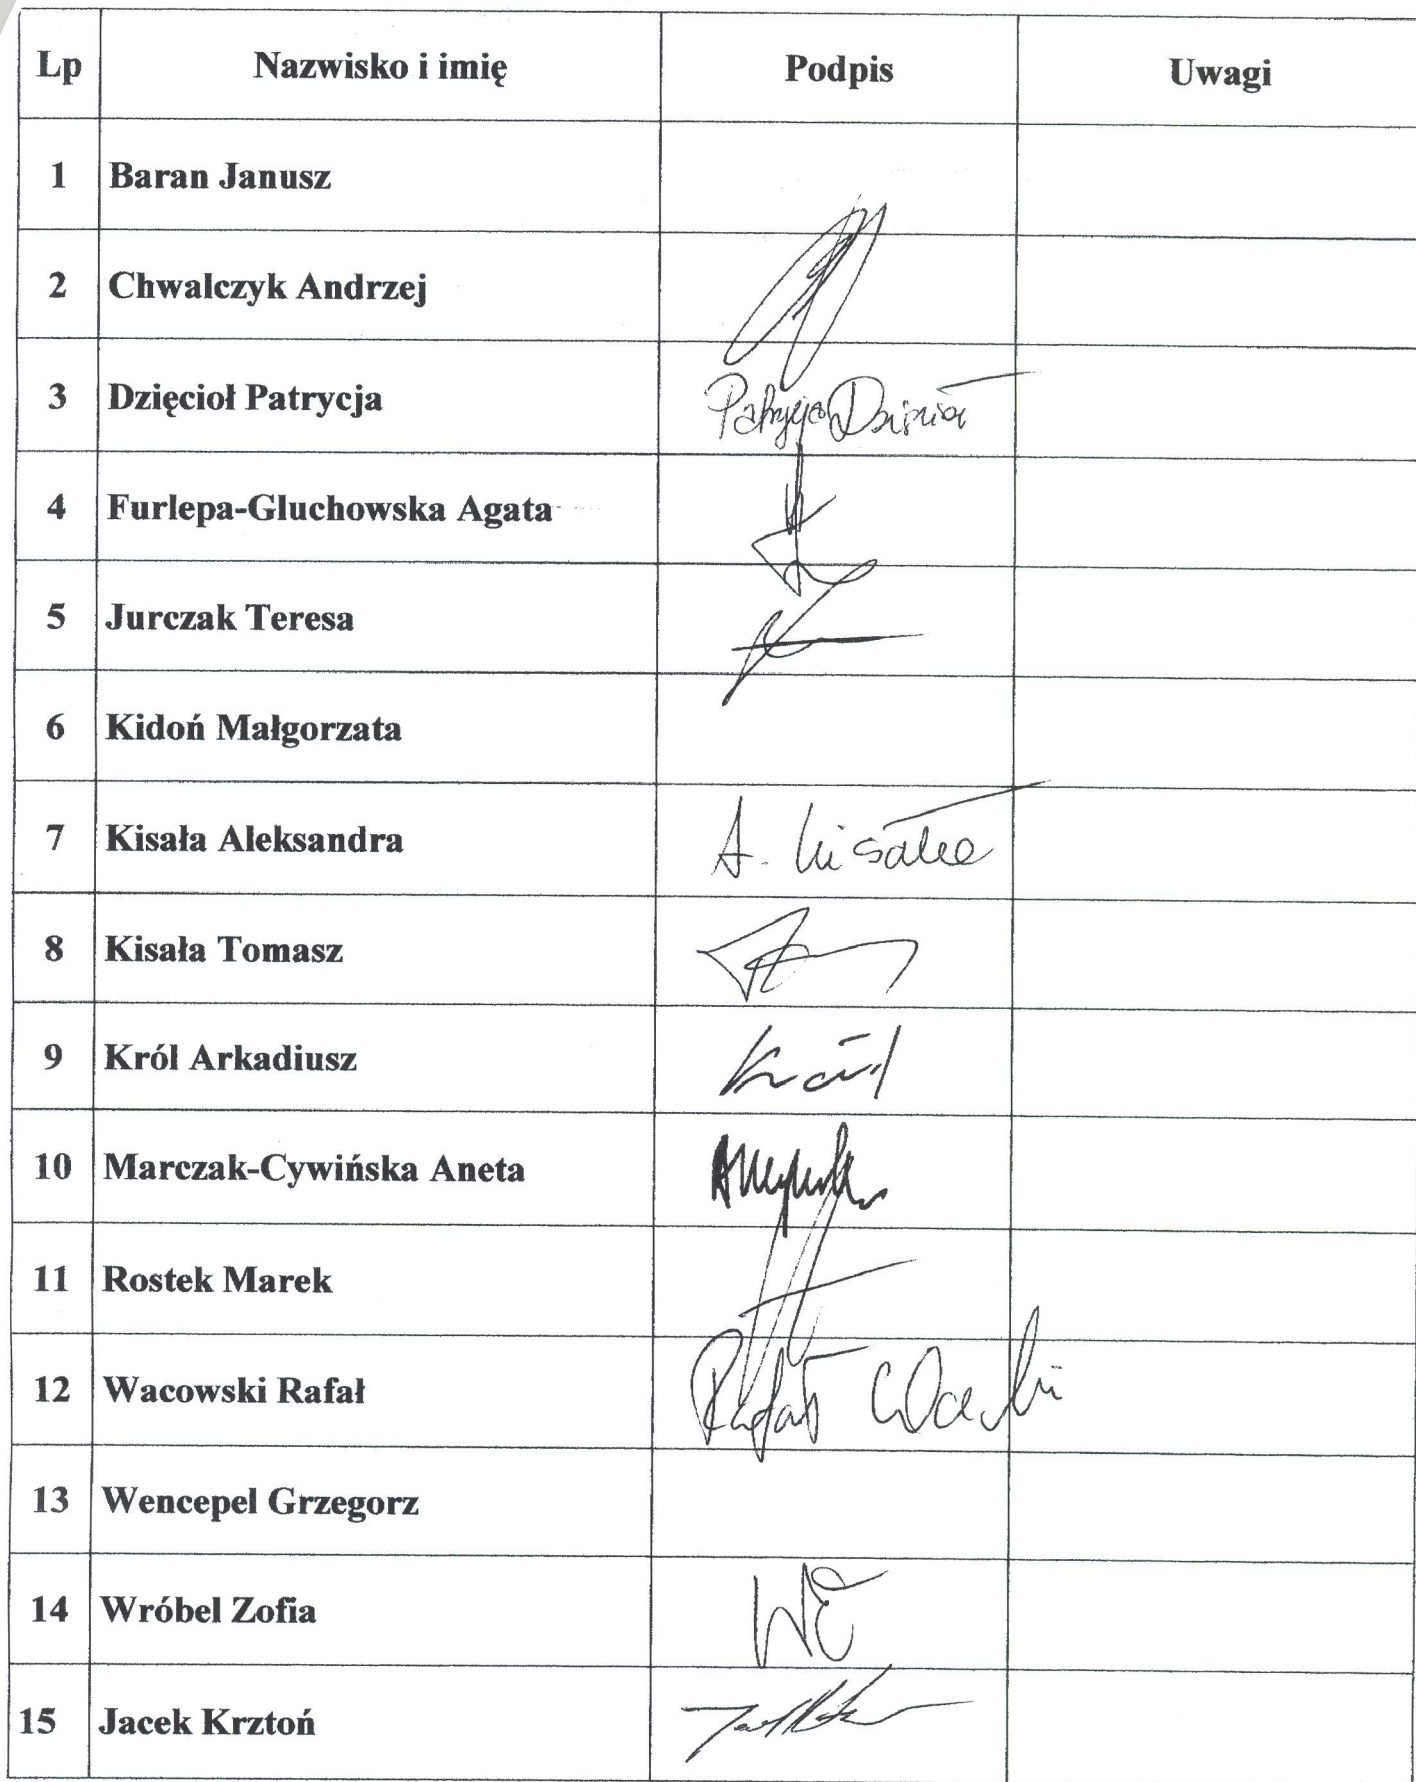 Lp Nazwisko i imię Podpis Uwagi
1 Baran Janusz
2 Chwalczyk Andrzej
3 Dzięcioł Patrycja Patrycja Dzięcioł
4 Furlepa-Gluchowska Agata
5 Jurczak Teresa
6 Kidoń Małgorzata
7 Kisała Aleksandra A. Kisała
8 Kisała Tomasz
9 Król Arkadiusz Król
10 Marczak-Cywińska Aneta
11 Rostek Marek
12 Wacowski Rafał Rafał
13 Wencepel Grzegorz
14 Wróbel Zofia
15 Jacek Krztoń